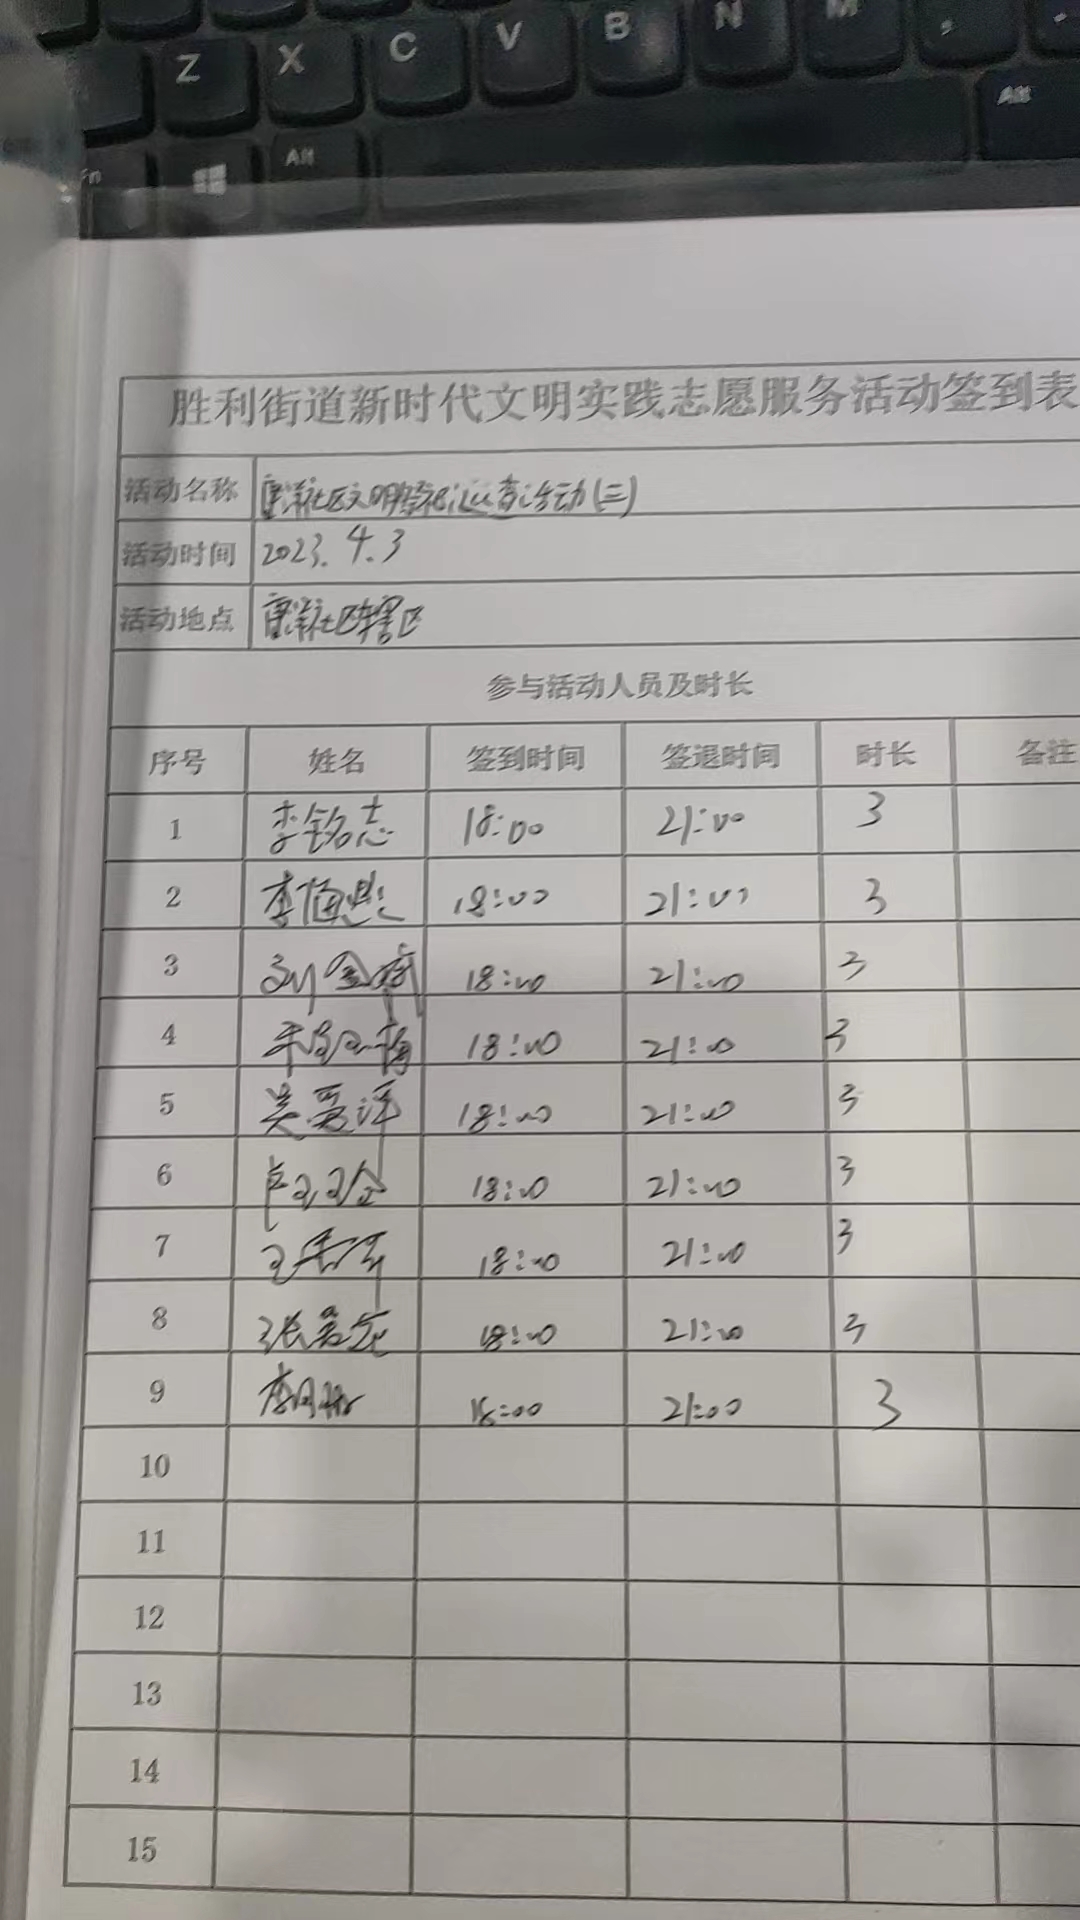 Z X C V B N M
Fn Alt Alt
胜利街道新时代文明实践志愿服务活动签到表
活动名称 社区文明祭祀巡查活动(三)
活动时间 2023.4.3
活动地点 社区辖区
参与活动人员及时长
序号 姓名 签到时间 签退时间 时长 备注
1 李铭志 18:00 21:00 3
2 李 18:00 21:00 3
3 刘金 18:00 21:00 3
4 18:00 21:00 3
5 吴 18:00 21:00 3
6 18:00 21:00 3
7 王 18:00 21:00 3
8 张 18:00 21:00 3
9 李 18:00 21:00 3
10
11
12
13
14
15